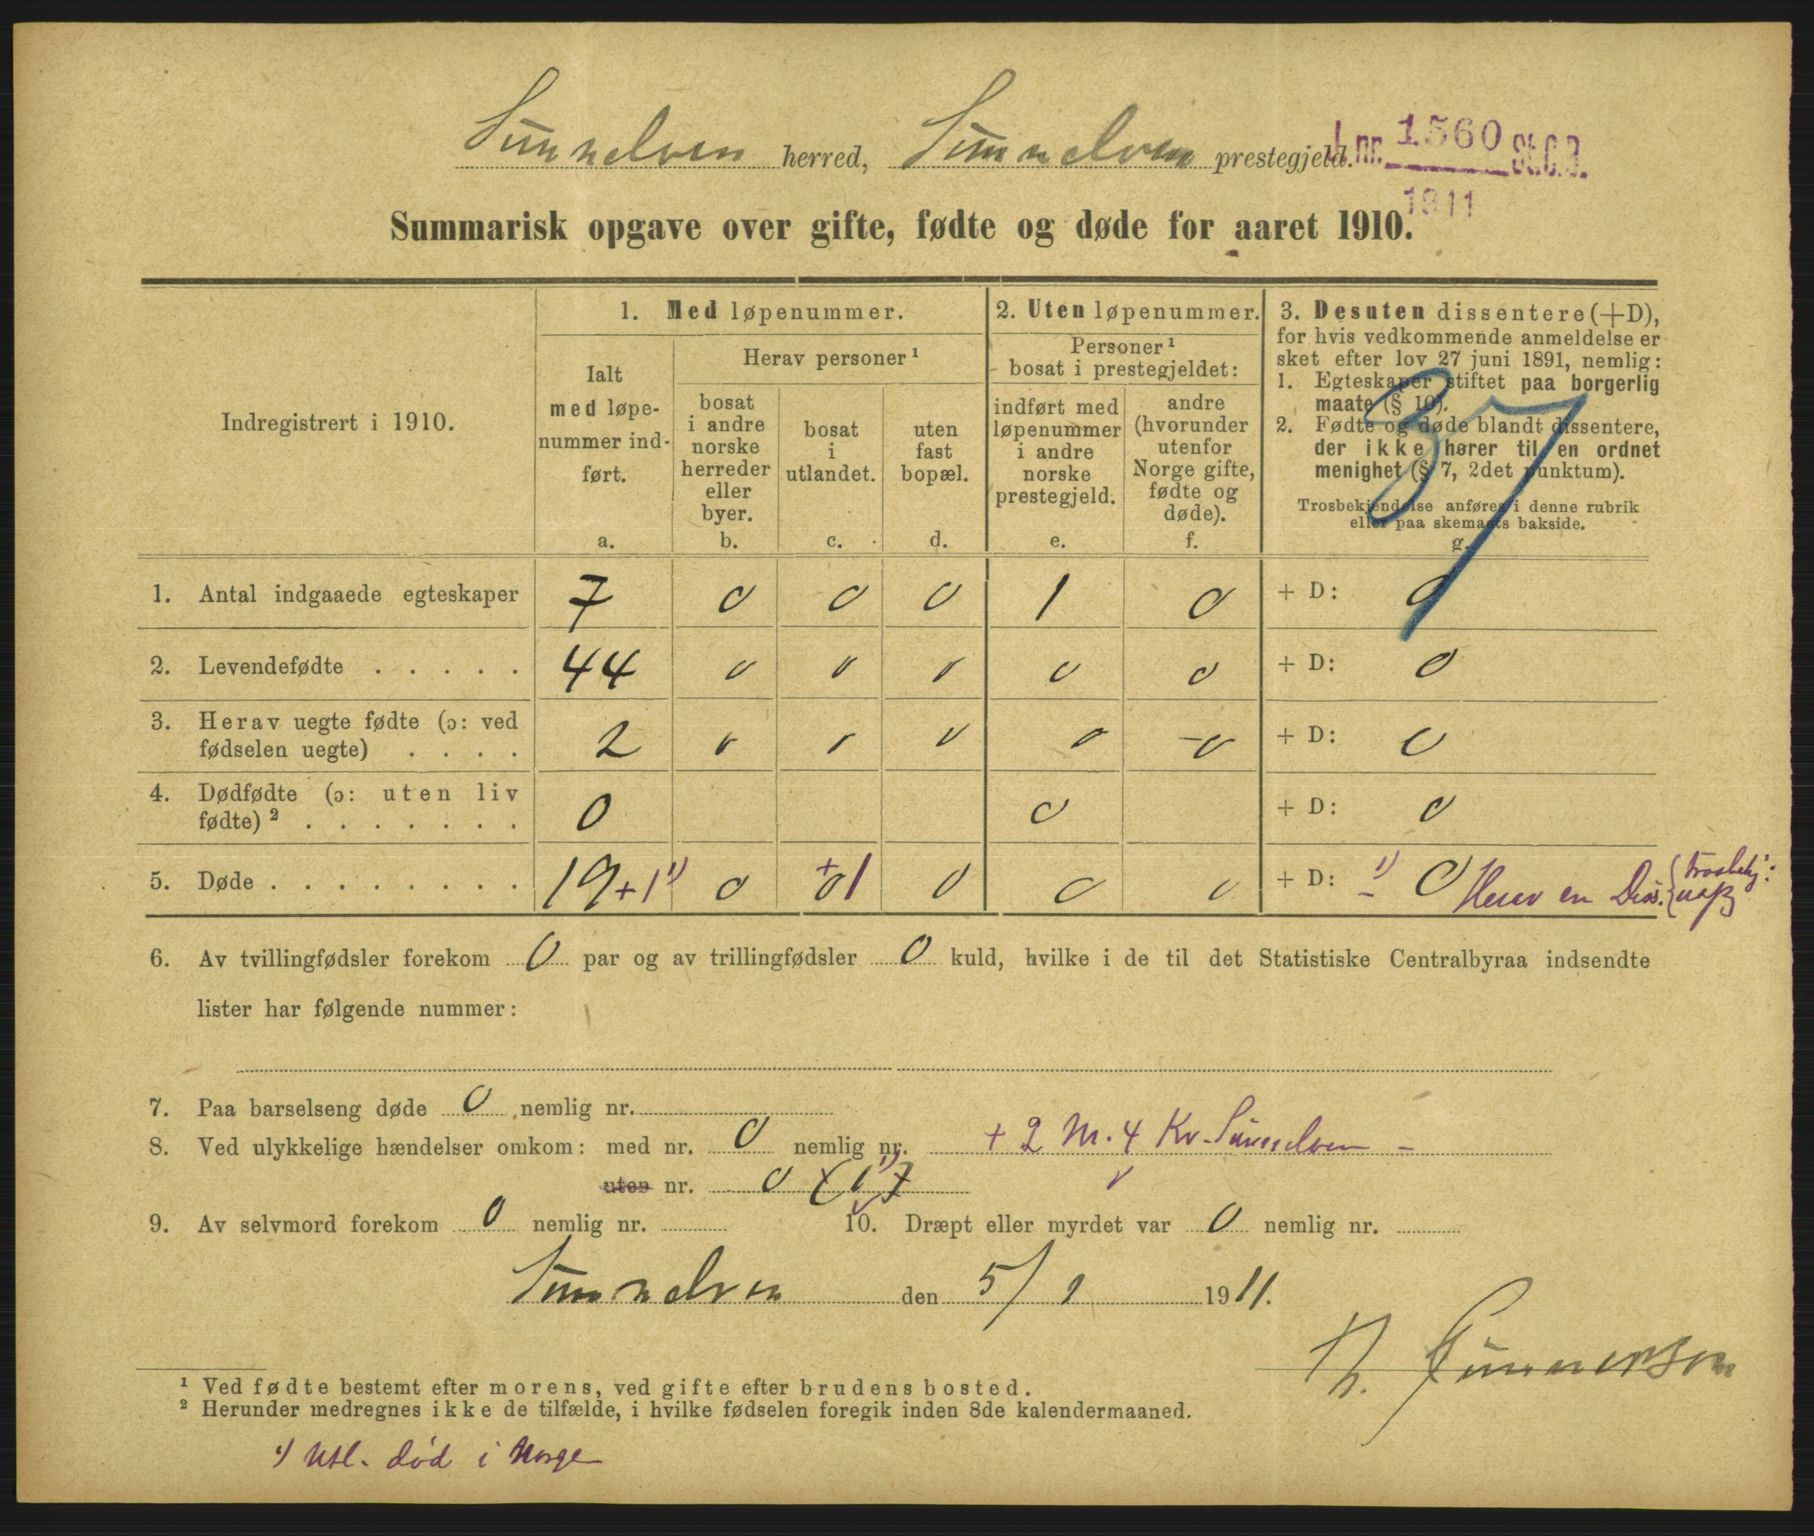 Sunnelven herred, Sunnelven prestegjeld.
J. nr. 1560 St.C.B.
1911
Summarisk opgave over gifte, fødte og døde for aaret 1910.
Indregistrert i 1910.
1. Med løpenummer.
Ialt med løpenummer indført.
a.
Herav personer ¹
bosat i andre norske herreder eller byer.
b.
bosat i utlandet.
c.
uten fast bopæl.
d.
2. Uten løpenummer.
Personer ¹ bosat i prestegjeldet:
indført med løpenummer i andre norske prestegjeld.
e.
andre (hvorunder utenfor Norge gifte, fødte og døde).
f.
3. Desuten dissentere (+D), for hvis vedkommende anmeldelse er sket efter lov 27 juni 1891, nemlig:
1. Egteskaper stiftet paa borgerlig maate (§ 10).
2. Fødte og døde blandt dissentere, der ikke hører til en ordnet menighet (§ 7, 2det punktum).
Trosbekjendelse anføres i denne rubrik eller paa skemaets bakside.
g.
37
1. Antal indgaaede egteskaper 7 0 0 0 1 0 + D: 0
2. Levendefødte . . . . . 44 0 0 0 0 0 + D: 0
3. Herav uegte fødte (ɔ: ved fødselen uegte) . . . . 2 0 0 0 0 0 + D: 0
4. Dødfødte (ɔ: uten liv fødte) ² . . . . . . . 0 0 + D: 0
5. Døde . . . . . . . . 19 +1 ¹) 0 0 +1 0 0 0 + D: ¹) 0 Herav en Diss.
6. Av tvillingfødsler forekom 0 par og av trillingfødsler 0 kuld, hvilke i de til det Statistiske Centralbyraa indsendte
lister har følgende nummer:
7. Paa barselseng døde 0 nemlig nr.
8. Ved ulykkelige hændelser omkom: med nr. 0 nemlig nr. + 2 M. 4 Kv. Sunnelven -
uten nr. 0
9. Av selvmord forekom 0 nemlig nr. 10. Dræpt eller myrdet var 0 nemlig nr.
Sunnelven den 5/1 1911.
Gunnerson
¹ Ved fødte bestemt efter morens, ved gifte efter brudens bosted.
² Herunder medregnes ikke de tilfælde, i hvilke fødselen foregik inden 8de kalendermaaned.
¹) Utl. død i Norge